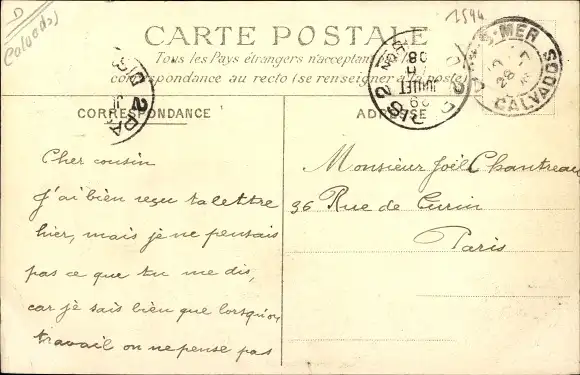 D
Calvados
1594
CARTE POSTALE
Tous les Pays étrangers n'acceptent
correspondance au recto (se renseigner à la poste)
S-MER
28 7
CALVADOS
BIS 2
29
JUILLET
08
2 PA
CORRESPONDANCE
ADRESSE
Cher cousin
J'ai bien reçu ta lettre
hier, mais je ne pensais
pas ce que tu me dis,
car je sais bien que lorsqu'on
travail on ne pense pas
Monsieur Joël Chantreau
36 Rue de
Paris